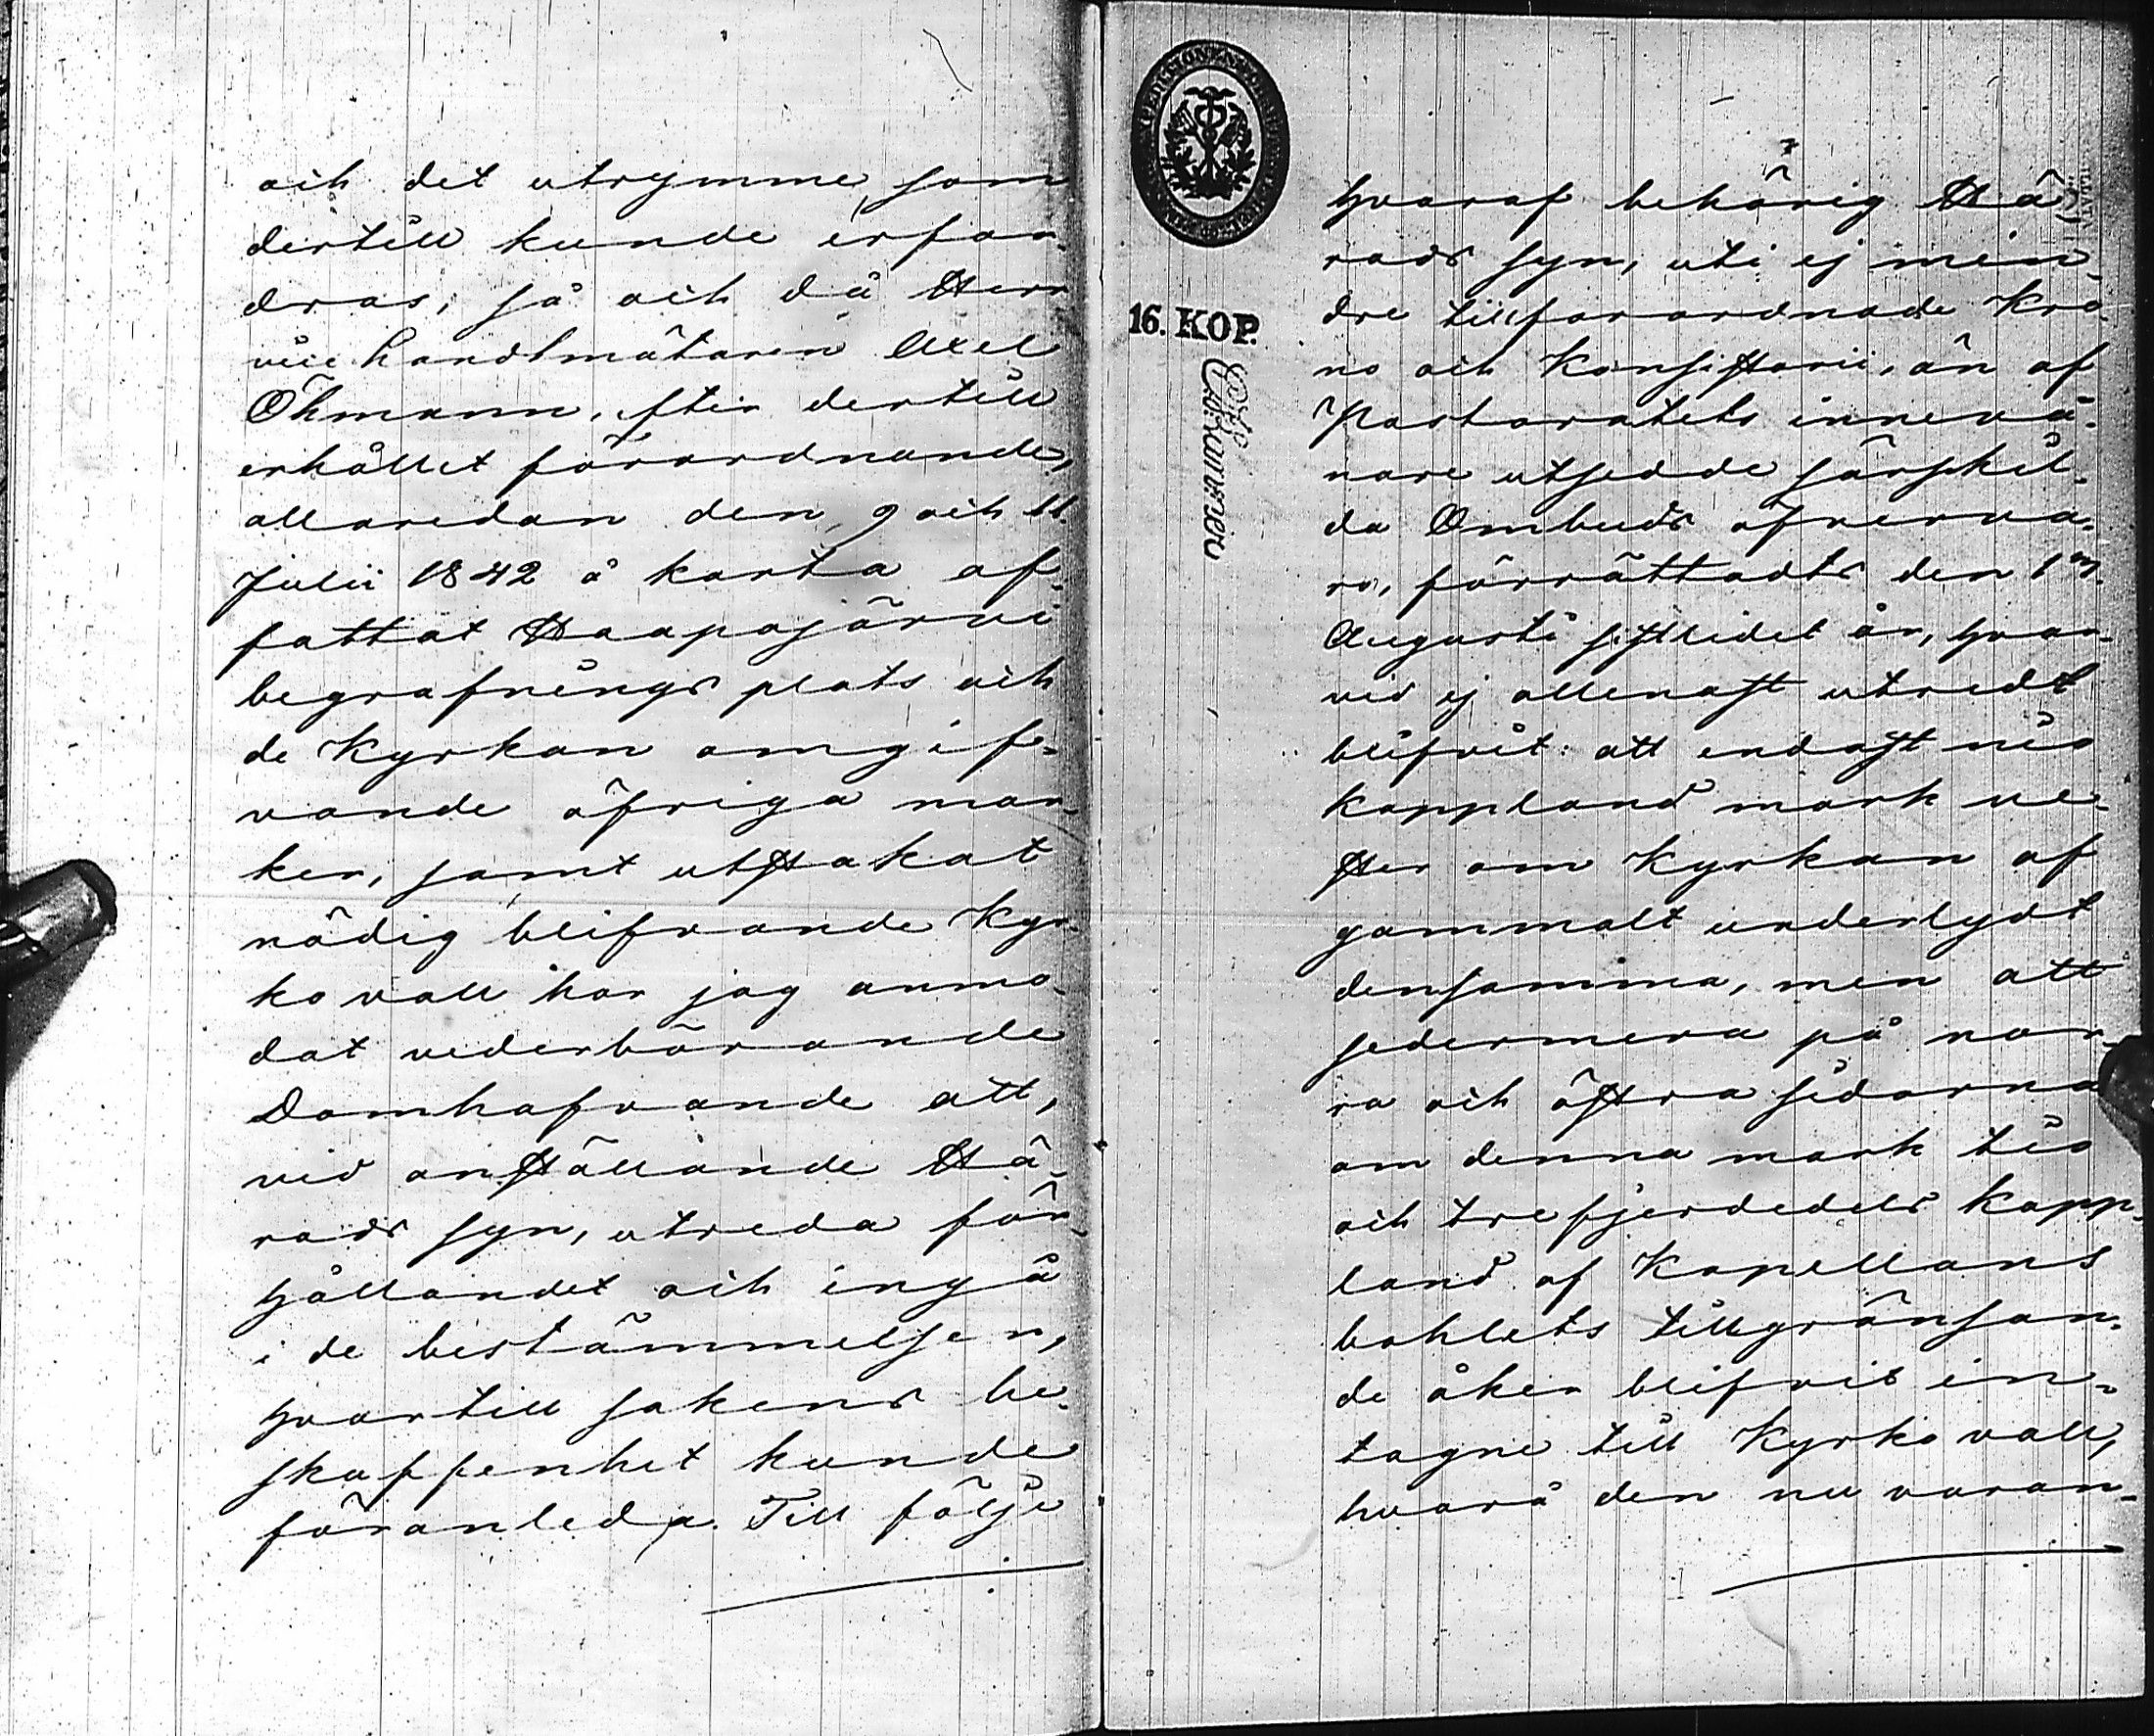 och det utrymme, som
dertill kunde erfor-
dras; så och då Herr
vice Landtmätaren Axel
Öhmann, efter dertill
erhållet förordnande,
allaredan den 9 och 11.
Julii 1842 å karta af-
fattat Haapajärvi
begrafnings plats och
de Kyrkan omgif-
vande öfriga mar-
ker, samt utstakat
nödig blifvande Kyr-
ko vall har jag anmo-
dat vederbörande
Domhafvande att,
vid anställande Hä-
rads syn, utreda för-
hållandet och ingå
i de bestämmelsen,
hvartill sakens be-
skaffenhet kunde
föranleda. Till följe
16. KOP.
hvaraf behörig Hä-
rads syn, uti ej min-
dre tillförordnade Kro-
no och Konsistorii, än af
Pastoratets inneva-
nare utsedde särskil-
da Ombuds öfverva-
ro, förrättadts den
Augusti sistlidet år, hvar-
vid ej allenast utredt
blifvit: att endast nio
kappland mark ve-
ster om Kyrkan af
gammalt underlydt
densamma, men att
sedermera på nor-
ra och östra sidorna
om denna mark tio
och trefjerdedels kapp-
land af Kapellans
bohlets tillgränsan-
de åker blifvit in-
tagne till Kyrko vall,
hvarå den nu varan-